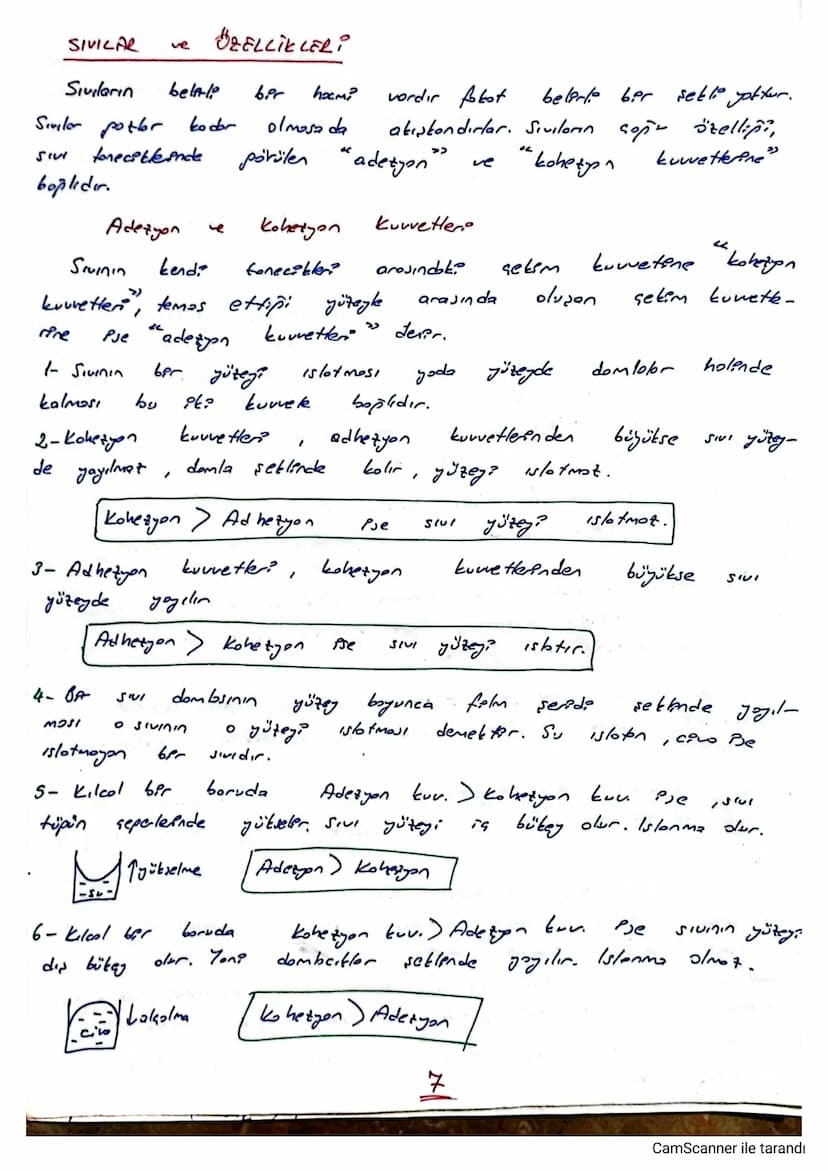 SIVILAR ve ÖZELLİKLERİ
Sıvıların belirli bir hacmi vardır fakat belirli bir şekli yoktur.
Sıvılar gazlar kadar olmasa da akışkandırlar. Sıvıların çoğu özelliği,
sıvı taneciklerinde görülen "adezyon" ve "kohezyon kuvvetlerine"
bağlıdır.
Adezyon ve Kohezyon Kuvvetleri
Sıvının kendi tanecikleri arasındaki çekim kuvvetine "kohezyon
kuvvetleri", temas ettiği yüzeyle arasında oluşan çekim kuvvetle-
rine ise "adezyon kuvvetleri" denir.
1- Sıvının bir yüzeyi ıslatması yada yüzeyde damlalar halinde
kalması bu iki kuvvete bağlıdır.
2- Kohezyon kuvvetleri, adhezyon kuvvetlerinden büyükse sıvı yüzey-
de yayılmaz, damla şeklinde kalır, yüzeyi ıslatmaz.
Kohezyon > Adhezyon ise sıvı yüzeyi ıslatmaz.
3- Adhezyon kuvvetleri, kohezyon kuvvetlerinden büyükse sıvı
yüzeyde yayılır
Adhezyon > Kohezyon ise sıvı yüzeyi ıslatır.
4- Bir sıvı damlasının yüzey boyunca film şeridi şeklinde yayıl-
ması o sıvının o yüzeyi ıslatması demektir. Su ıslatan, cıva ise
ıslatmayan bir sıvıdır.
5- Kılcal bir boruda Adezyon kuv. > Kohezyon kuv. ise, sıvı
tüpün çeperlerinde yükselir. Sıvı yüzeyi iç bükey olur. Islanma olur.
su ↑yükselme Adezyon > Kohezyon
6- Kılcal bir boruda Kohezyon kuv. > Adezyon kuv. ise sıvının yüzeyi
dış bükey olur. Yani damlacıklar şeklinde yayılır. Islanma olmaz.
civa ↓alçalma Kohezyon > Adezyon
7
CamScanner ile tarandı